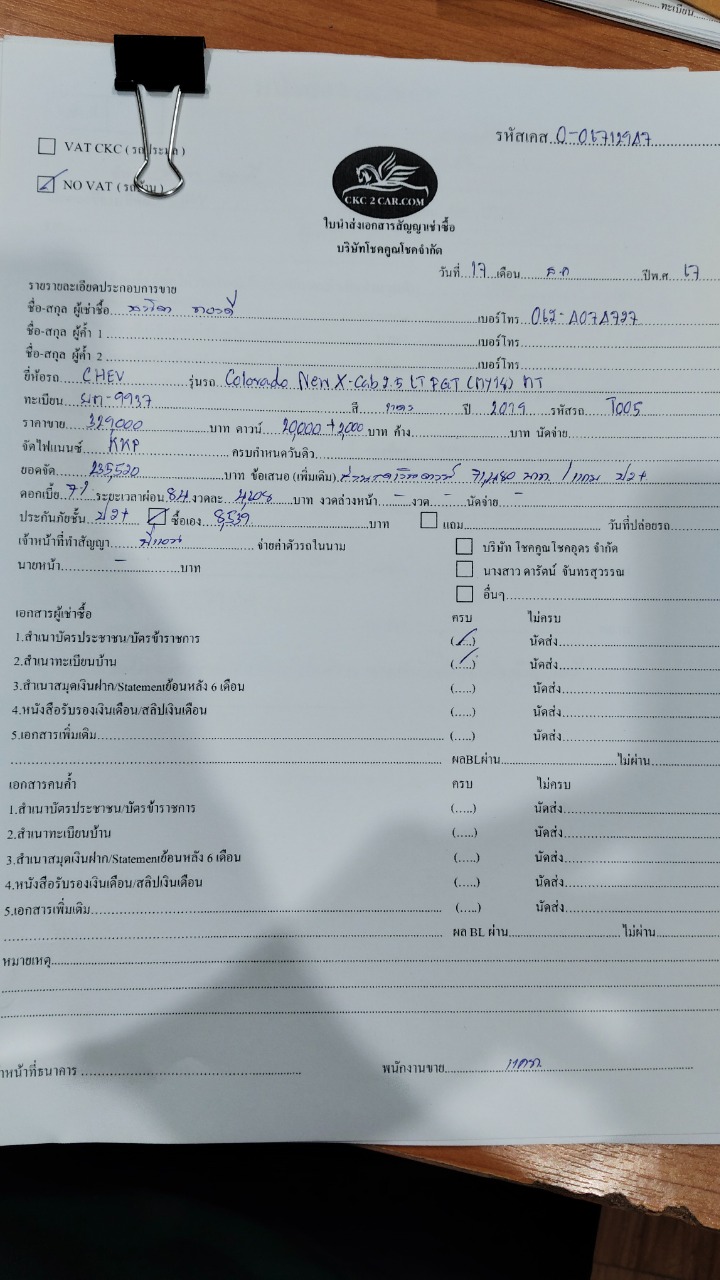 ทะเบียน
รหัสเคส 0-06712987
VAT CKC ( รถประมูล )
NO VAT ( รถบ้าน )
CKC 2 CAR.COM
ใบนำส่งเอกสารสัญญาเช่าซื้อ
บริษัทโชคคูณโชคจำกัด
วันที่ 17 เดือน ธ.ค ปีพ.ศ 67
รายรายละเอียดประกอบการขาย
ชื่อ-สกุล ผู้เช่าซื้อ เบอร์โทร
ชื่อ-สกุล ผู้ค้ำ 1 เบอร์โทร
ชื่อ-สกุล ผู้ค้ำ 2 เบอร์โทร
ยี่ห้อรถ CHEV รุ่นรถ Colorado New X-Cab 2.5 LT PGT (MY14) MT
ทะเบียน ผท-9937 สี ปี รหัสรถ T005
ราคาขาย 329,000 บาท ดาวน์ 20,000 + 2,000 บาท ค้าง บาท นัดจ่าย
จัดไฟแนนซ์ KKP ครบกำหนดวันดิว
ยอดจัด 235,520 บาท ข้อเสนอ (เพิ่มเติม) ส่วนลดเงินดาวน์ 71,480 บาท / แถม ป2+
ดอกเบี้ย ระยะเวลาผ่อน 84 งวดละ บาท งวดล่วงหน้า - งวด - นัดจ่าย -
ประกันภัยชั้น ป2+ ซื้อเอง 8,539 บาท แถม วันที่ปล่อยรถ
เจ้าหน้าที่ทำสัญญา จ่ายค่าตัวรถในนาม บริษัท โชคคูณโชคอุดร จำกัด
นายหน้า - บาท นางสาว ดารัตน์ จันทรสุวรรณ
อื่นๆ
เอกสารผู้เช่าซื้อ ครบ ไม่ครบ
1.สำเนาบัตรประชาชน/บัตรข้าราชการ (.....) นัดส่ง
2.สำเนาทะเบียนบ้าน (.....) นัดส่ง
3.สำเนาสมุดเงินฝาก/Statementย้อนหลัง 6 เดือน (.....) นัดส่ง
4.หนังสือรับรองเงินเดือน/สลิปเงินเดือน (.....) นัดส่ง
5.เอกสารเพิ่มเติม (.....) นัดส่ง
ผลBLผ่าน ไม่ผ่าน
เอกสารคนค้ำ ครบ ไม่ครบ
1.สำเนาบัตรประชาชน/บัตรข้าราชการ (.....) นัดส่ง
2.สำเนาทะเบียนบ้าน (.....) นัดส่ง
3.สำเนาสมุดเงินฝาก/Statementย้อนหลัง 6 เดือน (.....) นัดส่ง
4.หนังสือรับรองเงินเดือน/สลิปเงินเดือน (.....) นัดส่ง
5.เอกสารเพิ่มเติม (.....) นัดส่ง
ผล BL ผ่าน ไม่ผ่าน
หมายเหตุ
าหน้าที่ธนาคาร พนักงานขาย